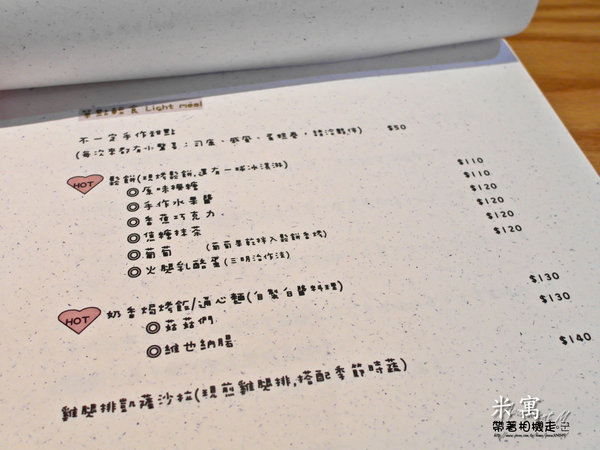 單點輕食 Light meal
不一定手作甜點 $50
(每次來都有小驚喜:司康、戚風、蛋糕卷,請洽夥伴)
HOT 鬆餅(現烤鬆餅,還有一球冰淇淋)
◎原味糖 $110
◎手作水果醬 $110
◎香蕉巧克力. $120
◎焦糖抹茶 $120
◎葡萄 (葡萄果乾拌入鬆餅香烤) $120
◎火腿乳酪蛋(三明治作法) $120
HOT 奶香焗烤飯/通心麵(自製白醬料理)
◎菇菇們 $130
◎維也納腸 $130
雞腿排凱薩沙拉(現煎雞腿排,搭配季節時蔬) $140
米寓
帶著相機走